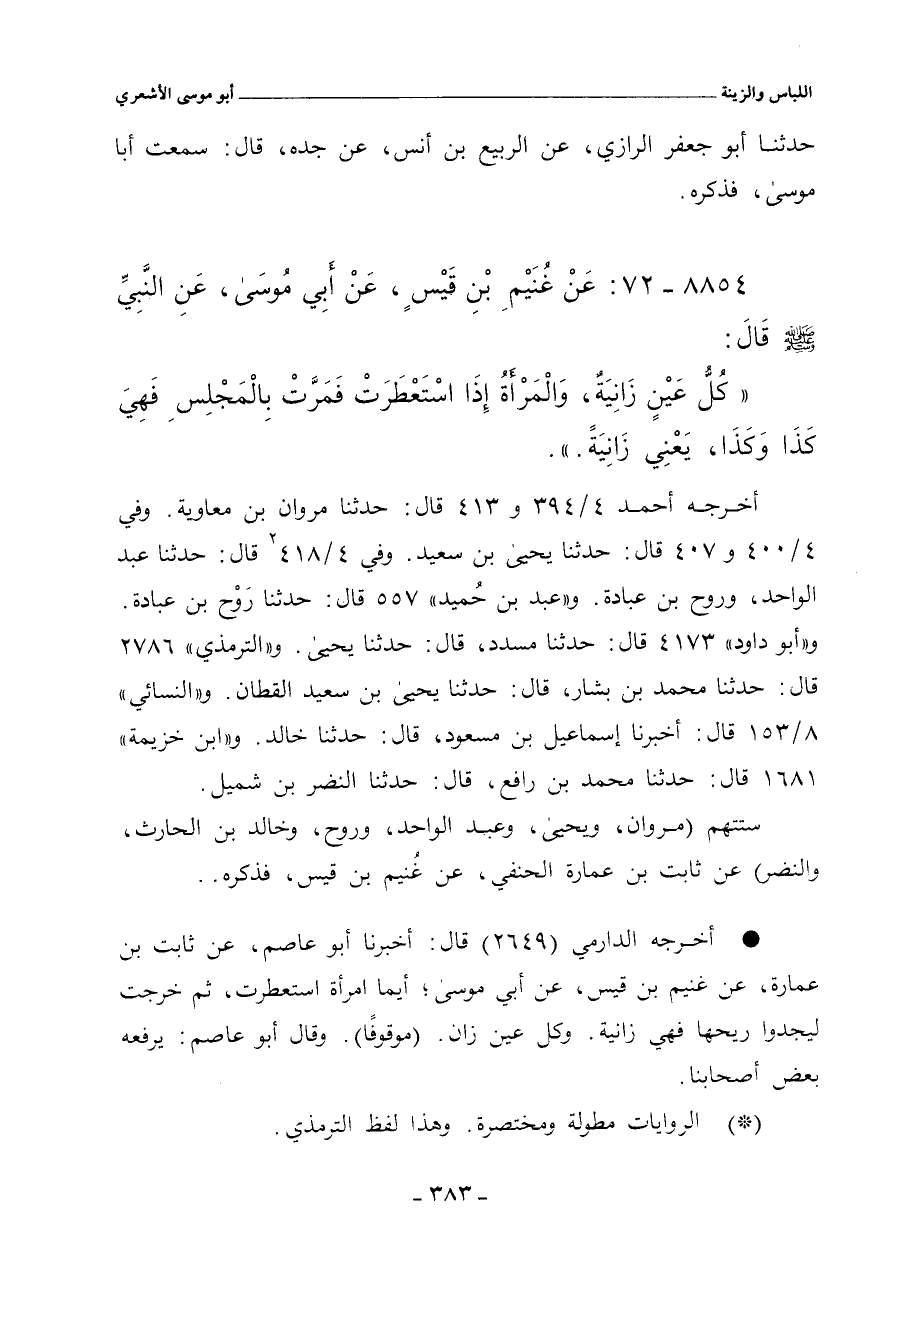 اللباس والزينة ــــــــــــ أبو موسى الأشعري
حدثنا أبو جعفر الرازي، عن الربيع بن أنس، عن جده، قال: سمعت أبا
موسىٰ، فذكره.
٨٨٥٤ ـ ٧٢: عَنْ غُنَيْمِ بْنِ قَيْسٍ، عَنْ أَبِي مُوسَىٰ، عَنِ النَّبِيِّ
ﷺ قَالَ:
« كُلُّ عَيْنٍ زَانِيَةٌ، وَالْمَرْأَةُ إِذَا اسْتَعْطَرَتْ فَمَرَّتْ بِالْمَجْلِسِ فَهِيَ
كَذَا وَكَذَا، يَعْنِي زَانِيَةً.».
أخرجه أحمد ٣٩٤/٤ و ٤١٣ قال: حدثنا مروان بن معاوية. وفي
٤٠٠/٤ و ٤٠٧ قال: حدثنا يحيىٰ بن سعيد. وفي ٤١٨/٤٢ قال: حدثنا عبد
الواحد، وروح بن عبادة. و«عبد بن حُميد» ٥٥٧ قال: حدثنا رَوْح بن عبادة.
و«أبو داود» ٤١٧٣ قال: حدثنا مسدد، قال: حدثنا يحيىٰ. و«الترمذي» ٢٧٨٦
قال: حدثنا محمد بن بشار، قال: حدثنا يحيىٰ بن سعيد القطان. و«النسائي»
١٥٣/٨ قال: أخبرنا إسماعيل بن مسعود، قال: حدثنا خالد. و«ابن خزيمة»
١٦٨١ قال: حدثنا محمد بن رافع، قال: حدثنا النضر بن شميل.
ستتهم (مروان، ويحيىٰ، وعبد الواحد، وروح، وخالد بن الحارث،
والنضر) عن ثابت بن عمارة الحنفي، عن غُنيم بن قيس، فذكره..
● أخرجه الدارمي (٢٦٤٩) قال: أخبرنا أبو عاصم، عن ثابت بن
عمارة، عن غنيم بن قيس، عن أبي موسىٰ؛ أيما امرأة استعطرت، ثم خرجت
ليجدوا ريحها فهي زانية. وكل عين زان. (موقوفًا). وقال أبو عاصم: يرفعه
بعض أصحابنا.
(*) الروايات مطولة ومختصرة. وهذا لفظ الترمذي.
ـ ٣٨٣ ـ